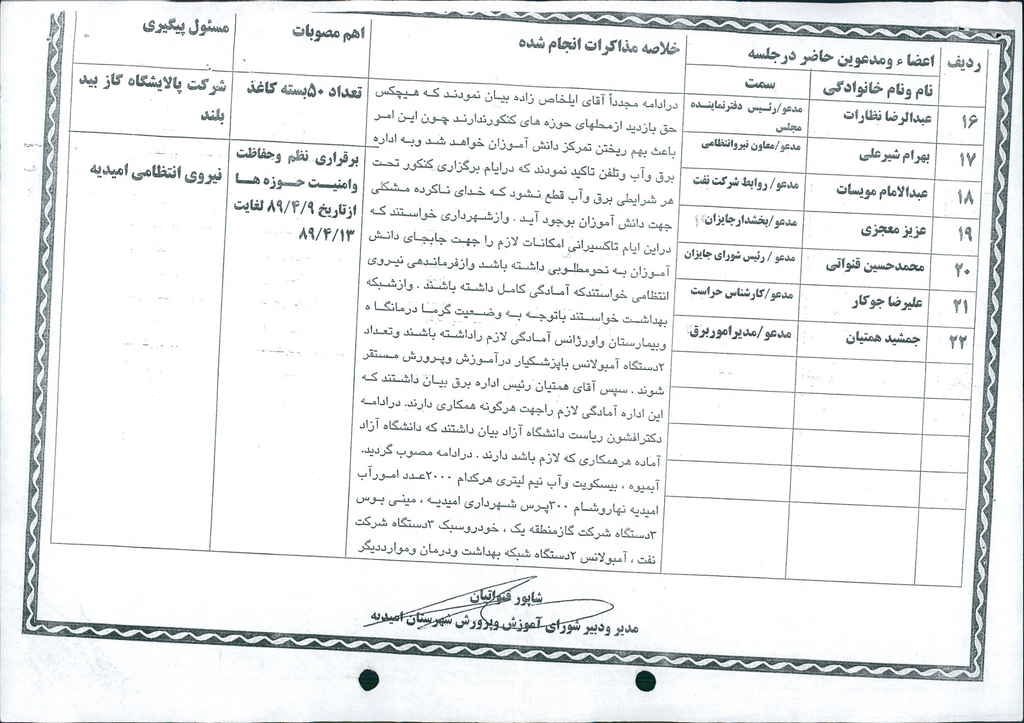 ردیف
اعضاء ومدعوین حاضر درجلسه
نام ونام خانوادگی
سمت
خلاصه مذاکرات انجام شده
اهم مصوبات
مسئول پیگیری
۱۶
عبدالرضا نظارات
مدعو/رئیس دفترنماینده
مجلس
۱۷
بهرام شیرعلی
مدعو/معاون نیروانتظامی
۱۸
عبدالامام مویسات
مدعو/ روابط شرکت نفت
۱۹
عزیز معجزی
مدعو/بخشدارجایزان
۲۰
محمدحسین قنواتی
مدعو/ رئیس شورای جایزان
۲۱
علیرضا جوکار
مدعو/کارشناس حراست
۲۲
جمشید همتیان
مدعو/مدیراموربرق
درادامه مجدداً آقای ایلخاص زاده بیان نمودند که هیچکس
حق بازدید ازمحلهای حوزه های کنکورندارند چون این امر
باعث بهم ریختن تمرکز دانش آموزان خواهد شد وبه اداره
برق وآب وتلفن تاکید نمودند که درایام برگزاری کنکور تحت
هر شرایطی برق وآب قطع نشود که خدای ناکرده مشکلی
جهت دانش آموزان بوجود آید . وازشهرداری خواستند که
دراین ایام تاکسیرانی امکانات لازم را جهت جابجای دانش
آموزان به نحومطلوبی داشته باشد وازفرماندهی نیروی
انتظامی خواستندکه آمادگی کامل داشته باشند . وازشبکه
بهداشت خواستند باتوجه به وضعیت گرما درمانگاه
وبیمارستان واورژانس آمادگی لازم راداشته باشند وتعداد
۲دستگاه آمبولانس باپزشکیار درآموزش وپرورش مستقر
شوند . سپس آقای همتیان رئیس اداره برق بیان داشتند که
این اداره آمادگی لازم راجهت هرگونه همکاری دارند. درادامه
دکترافشون ریاست دانشگاه آزاد بیان داشتند که دانشگاه آزاد
آماده هرهمکاری که لازم باشد دارند . درادامه مصوب گردید.
آبمیوه ، بیسکویت وآب نیم لیتری هرکدام ۲۰۰۰عدد امورآب
امیدیه نهاروشام ۳۰۰پرس شهرداری امیدیه ، مینی بوس
۳دستگاه شرکت گازمنطقه یک ، خودروسبک ۳دستگاه شرکت
نفت ، آمبولانس ۲دستگاه شبکه بهداشت ودرمان ومواردديگر
تعداد ۵۰بسته کاغذ
شرکت پالایشگاه گاز بید
بلند
برقراری نظم وحفاظت
وامنیت حوزه ها
ازتاریخ ۸۹/۴/۹ لغایت
۸۹/۴/۱۳
نیروی انتظامی امیدیه
شاپور قنواتیان
مدیر ودبیر شورای آموزش وپرورش شهرستان امیدیه